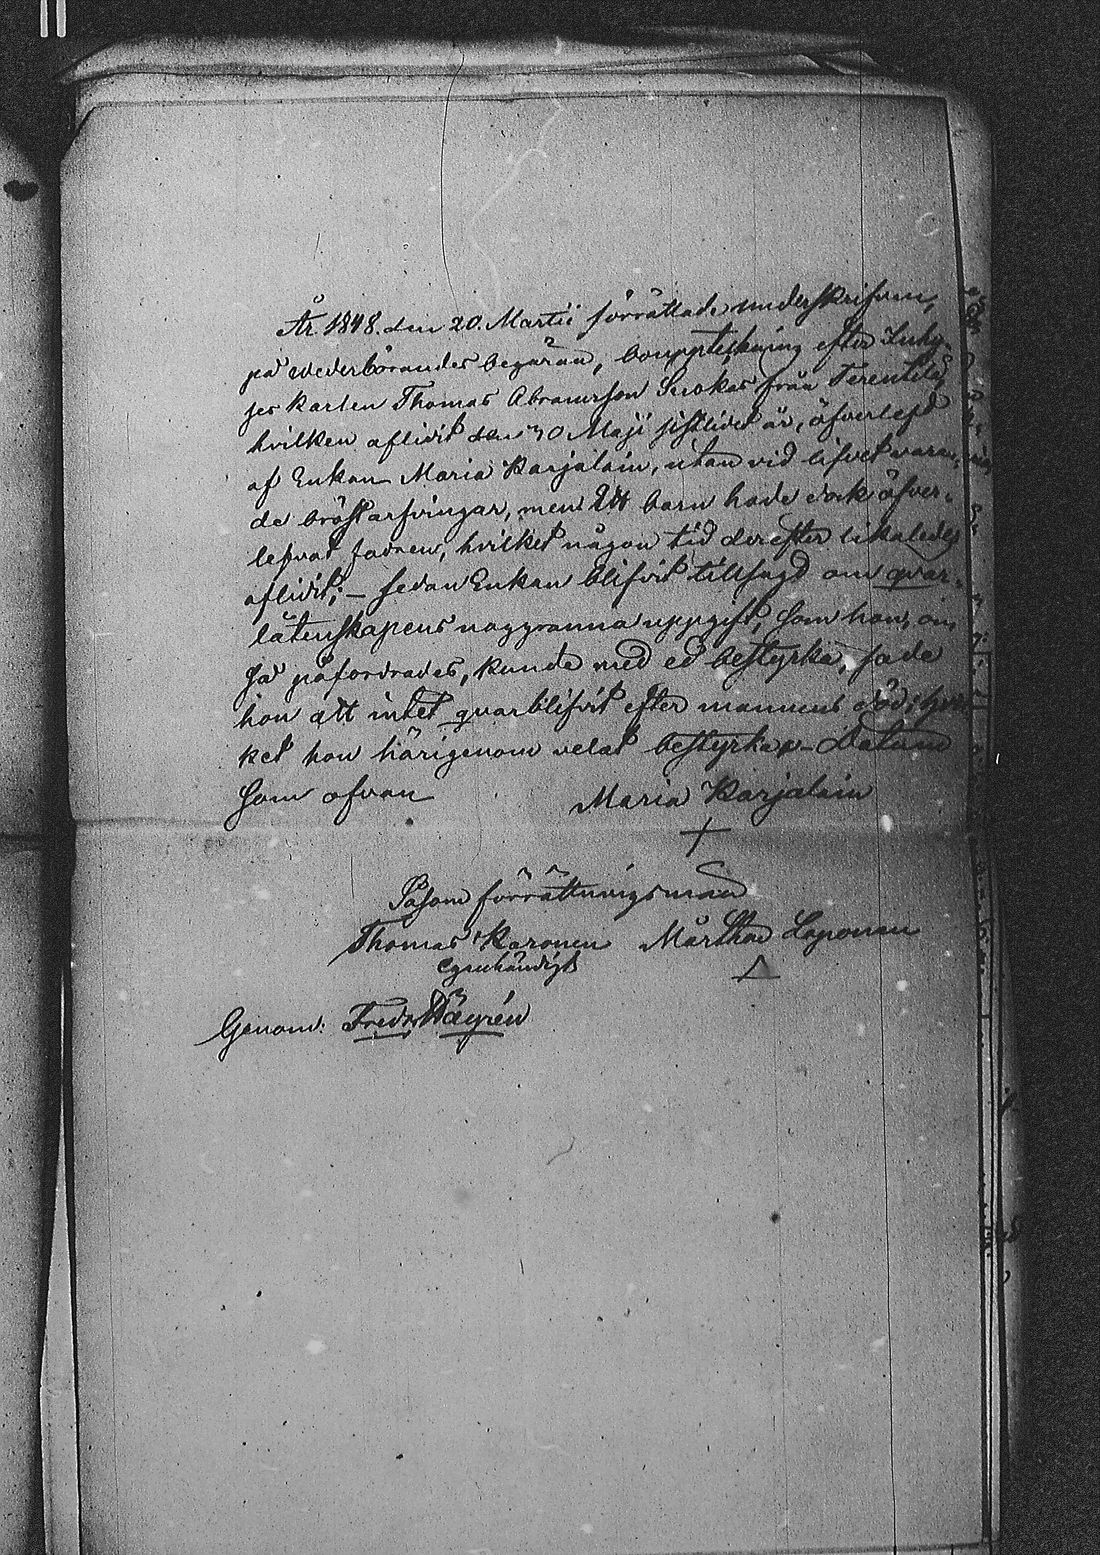 År 1848. den 20. Martii förrättade underskrifven,
på wederbörandes begäran, bouppteckning efter Inhy-
ses karlen Thomas Abramsson Suokas från Terentilä,
hvilken aflidit den 30 Maji sistlidet år, öfverlefd
af Enkan Maria Karjalain, utan vid lifvet varan-
de bröstarfvingar, men Ett barn hade dock öfver-
lefvat fadren, hvilket någon tid derefter likaledes
aflidit; – sedan Enkan blifvit tillsagd om qvar-
låtenskapens noggranna uppgift, som hon, om
så påfordrades, kunde med ed bestyrka, sade
hon att intet qvarblifvit efter mannens död; hvil-
ket hon härigenom velat bestyrka – Datum
som ofvan
Maria Karjalain
Såsom förrättningsman
Thomas Karonen Mårthen Laponen
egenhändigt
Genom: Fredr Wägrén